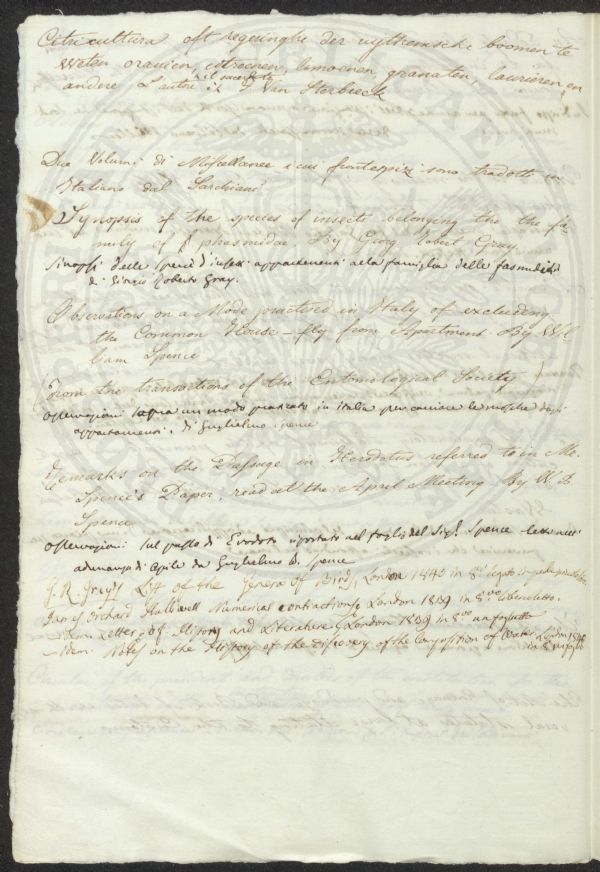 Citricultura oft regeringhe der uythemsche boomen te
weten oranien, citroenen, limoenen, granaten, laurieren en
andere L'autore è il suceffato F Van Sterbeeck
Due Volumi di Miscellanee i cui frontespizi sono tradotti in
Italiano dal Sarchiani
Synopsis of the species of insects belonging the the fa-
mily of phasmidae By Georg Robert Gray
Sinopsi delle specie d'insetti appartenenti alla famiglia delle fasmidee
di Giorgio Roberto Gray.
Observations on a Mode practised in Italy of excluding
the Common House-fly from Apartment By Wil
liam Spence
(From the transactions of the Entomological Society)
osservazioni sopra un modo praticato in italia per cacciare le mosche dagli
appartamenti, di Guglielmo Spence
Remarks on the Passage in Herodotus referred to in Mr.
Spence's Paper, read at the April Meeting By W. B
Spence
osservazioni sul passo di Erodoto riportato nel foglio del Sig.r Spence letto nell'
adunanza di Aprile da Guglielmo B. Spence
G. R. Gray's List of the Genera of Birds, London 1840 in 8.º legato in pelle
James Orchard Halliwell Numerical contractions London 1839 in 8.vo libercoletto.
Idem. Letters of History and Literature London 1839 in 8.vo un foglietto
Idem. Notes on the History of the discovery of the Composition of Water London 1840
in 8.º un foglio